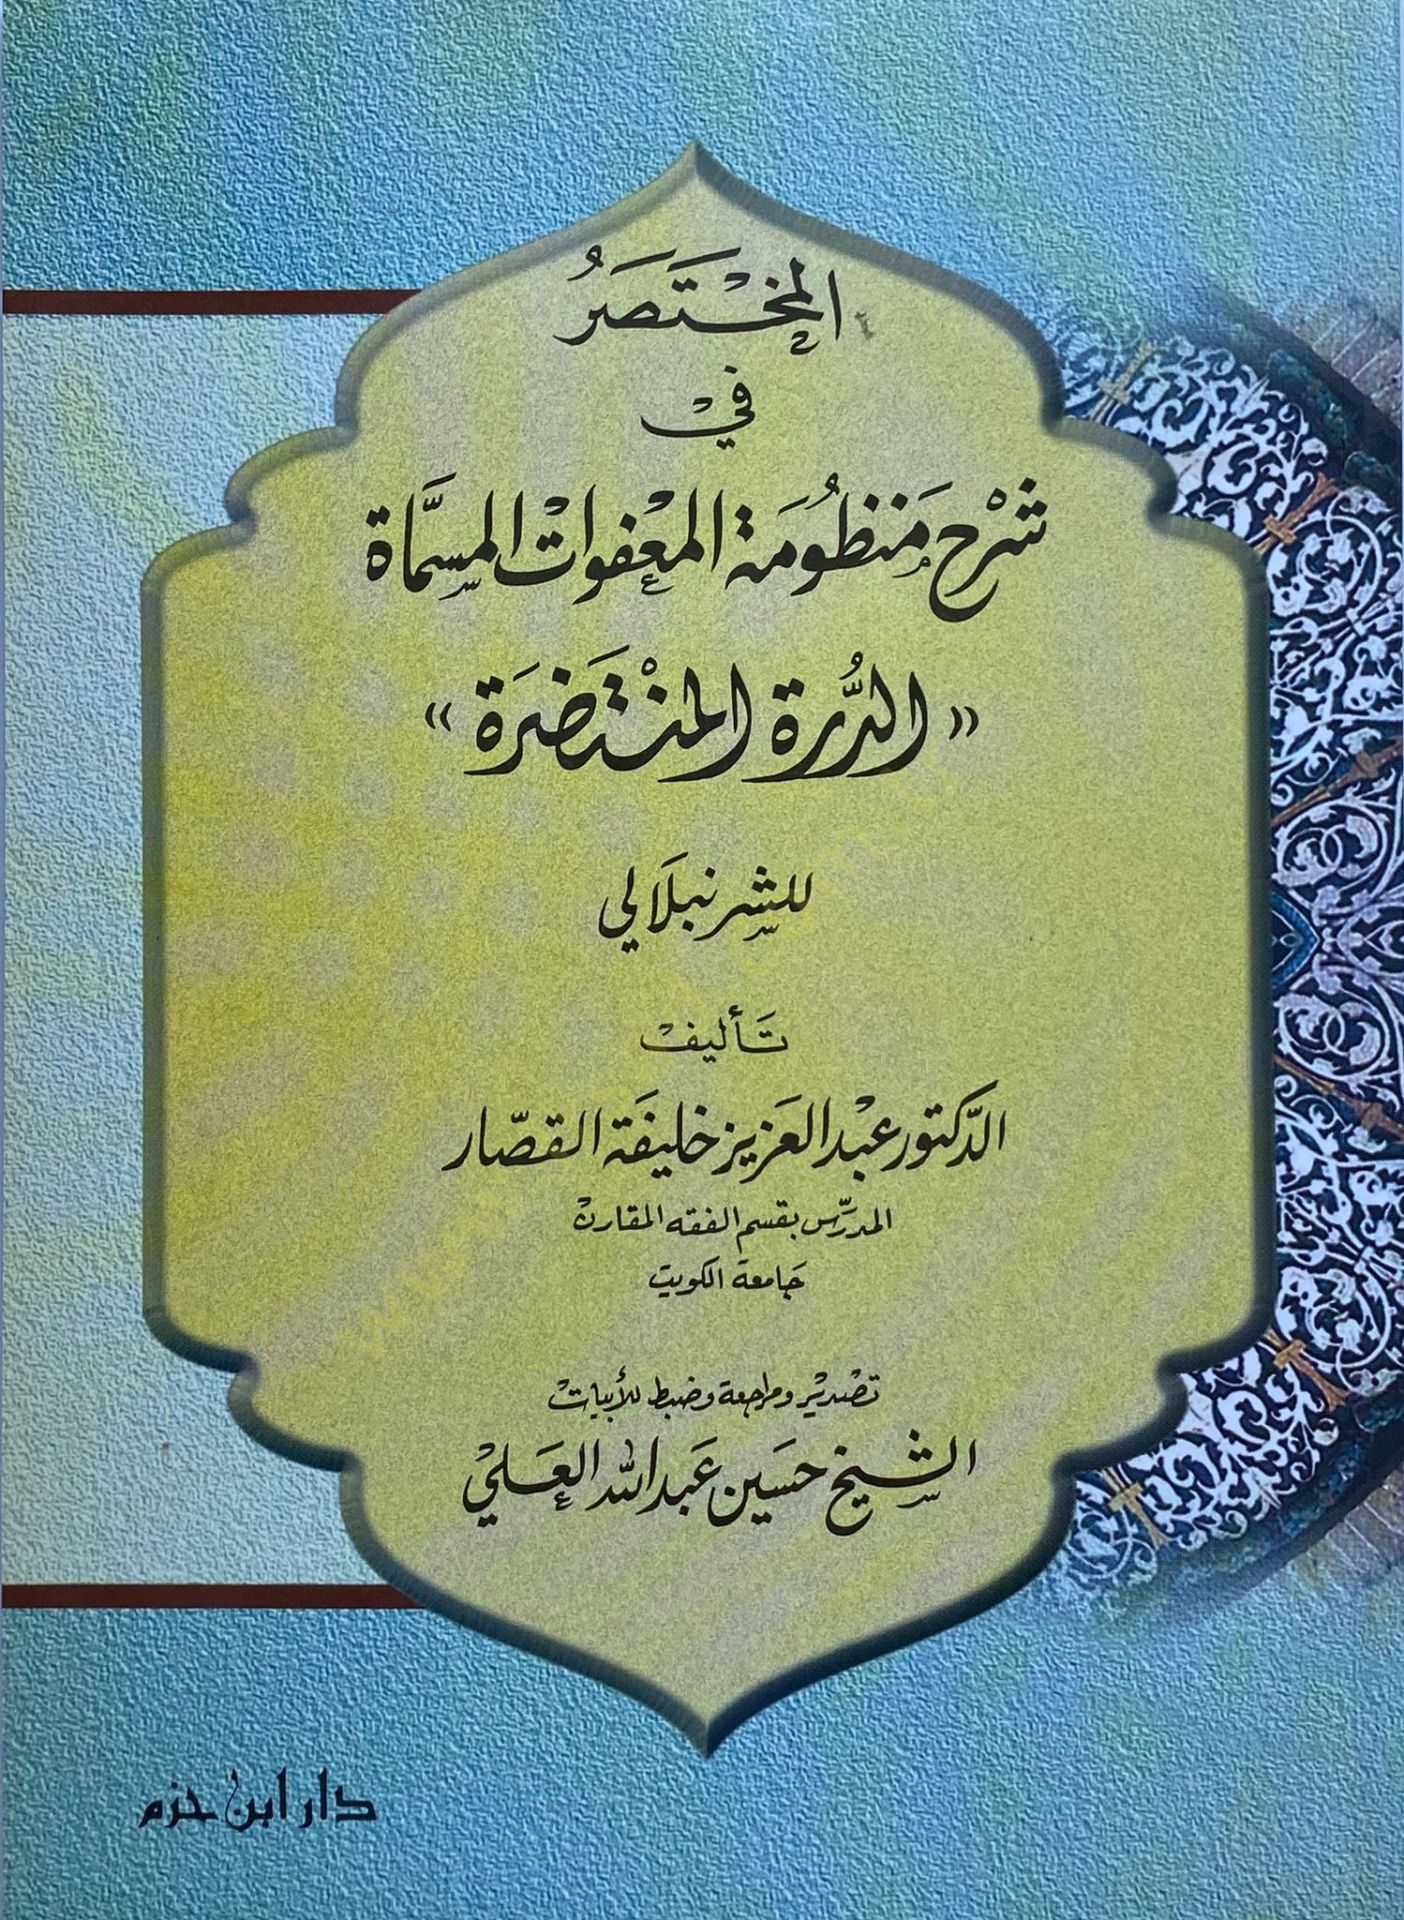 المختصَرُ
في
شرْح مَنظُومَة المعْفوات المسمَّاة
« الدُّرة المنْتَضرَة »
للشرنبلالي
تَأليف
الدّكتور عبْد العَزيز خليفَة القصّار
المدرّس بقسم الفقه المقارن
جَامعَة الكويت
تصْدير ومراجعة وضبط للأبيات
الشيخ حسَين عَبد الله العَلي
دار ابن حزم